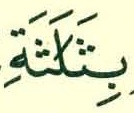 بِثَلَثَةِ